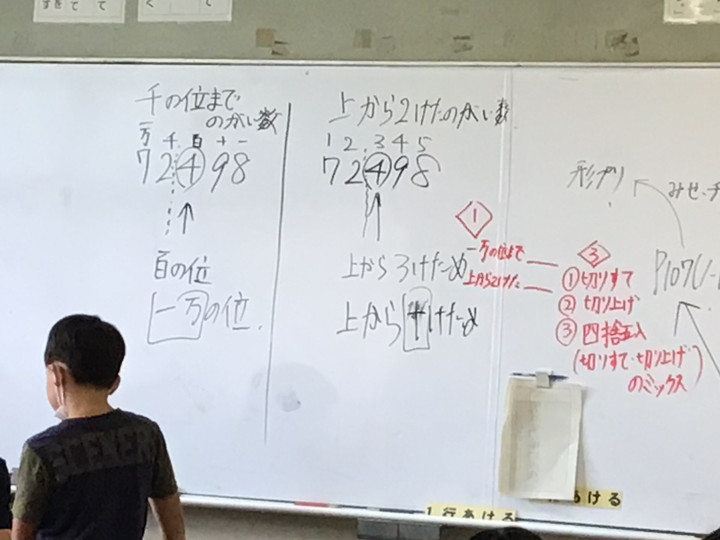 千の位まで
のがい数
一万 千 百 十 一
72498
百の位
一万の位
上から2けたのがい数
1 2 3 4 5
72498
上から3けため
上から けため
1
一万の位まで
上から2けた
3
①切りすて
②切り上げ
③四捨五入
(切りすて・切り上げ)
のミックス
形プリ
みせ・
P107
1行あける
あける